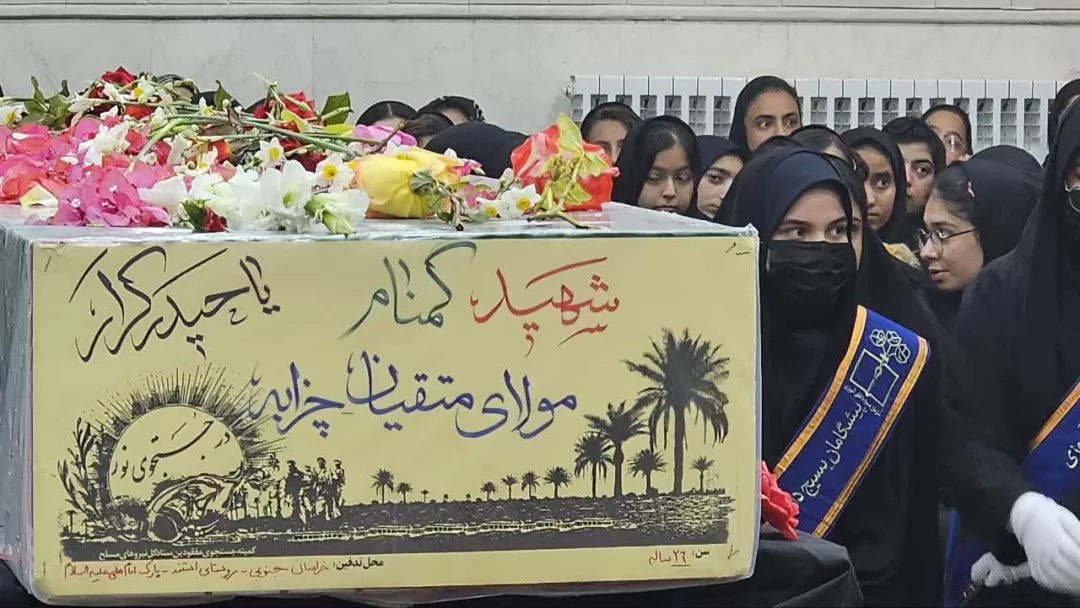 شهید گمنام
یا حیدر کرار
مولای متقیان چزابه
در جستجوی نور
کمیته جستجوی مفقودین ستاد کل نیروهای مسلح
سن: ۲۶ ساله
محل تدفین: خراسان جنوبی - روستای اسفند - پارک امام علی علیه السلام
پیشگامان بسیج د